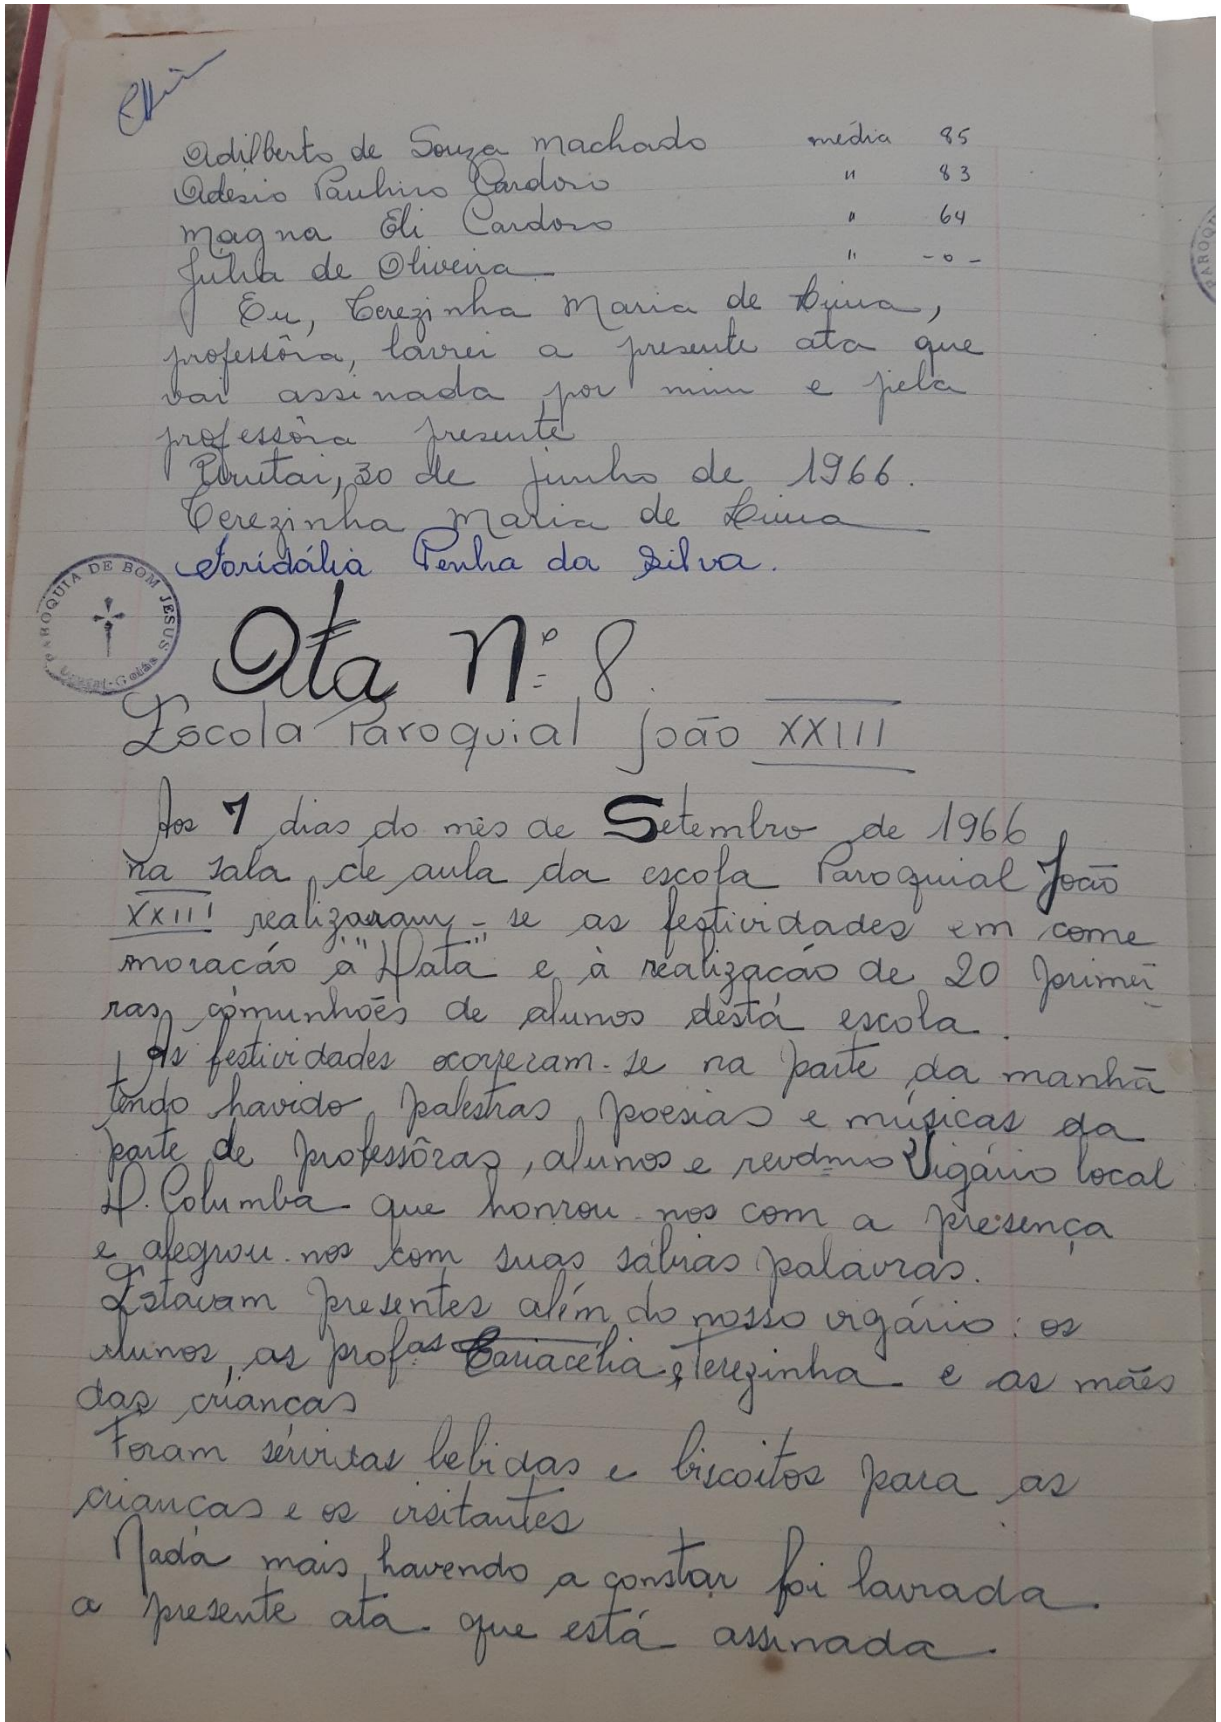 Adilberto de Souza Machado média 85
Adésio Paulino Cardoso " 83
Magna Eli Cardoso " 64
Júlia de Oliveira " -o-
Eu, Terezinha Maria de Lima,
professôra, lavrei a presente ata que
vai assinada por mim e pela
professôra presente
Urutai, 30 de junho de 1966.
Terezinha Maria de Lima
Penha da Silva.
PAROQUIA DE BOM JESUS
Ata Nº 8.
Escola Paroquial João XXIII
Aos 7 dias do mês de Setembro de 1966
na sala de aula da escola Paroquial João
XXIII realizaram-se as festividades em come
moração à "Data" e à realização de 20 primei
ras comunhões de alunos desta escola.
As festividades ocorreram-se na parte da manhã
tendo havido palestras, poesias e músicas da
parte de professôras, alunos e revdmo Vigário local
D. Columba que honrou-nos com a presença
e alegrou-nos com suas sábias palavras.
Estavam presentes além do nosso vigário: os
alunos, as profas e Terezinha e as mães
das crianças
Foram servidas bebidas e biscoitos para as
crianças e os visitantes
Nada mais havendo a constar foi lavrada
a presente ata que está assinada.